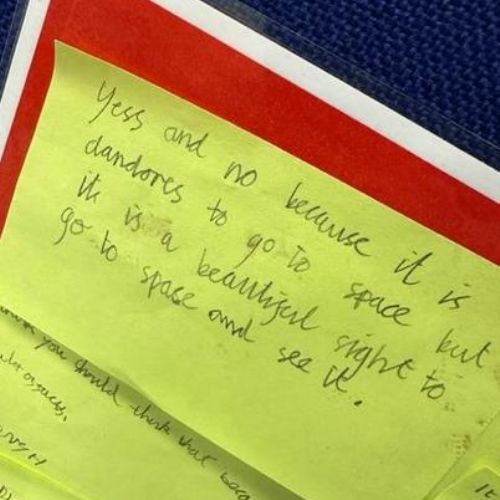 Yess and no because it is
dandores to go to space but
it is a beautiful sight to
go to space and see it.
you should think that